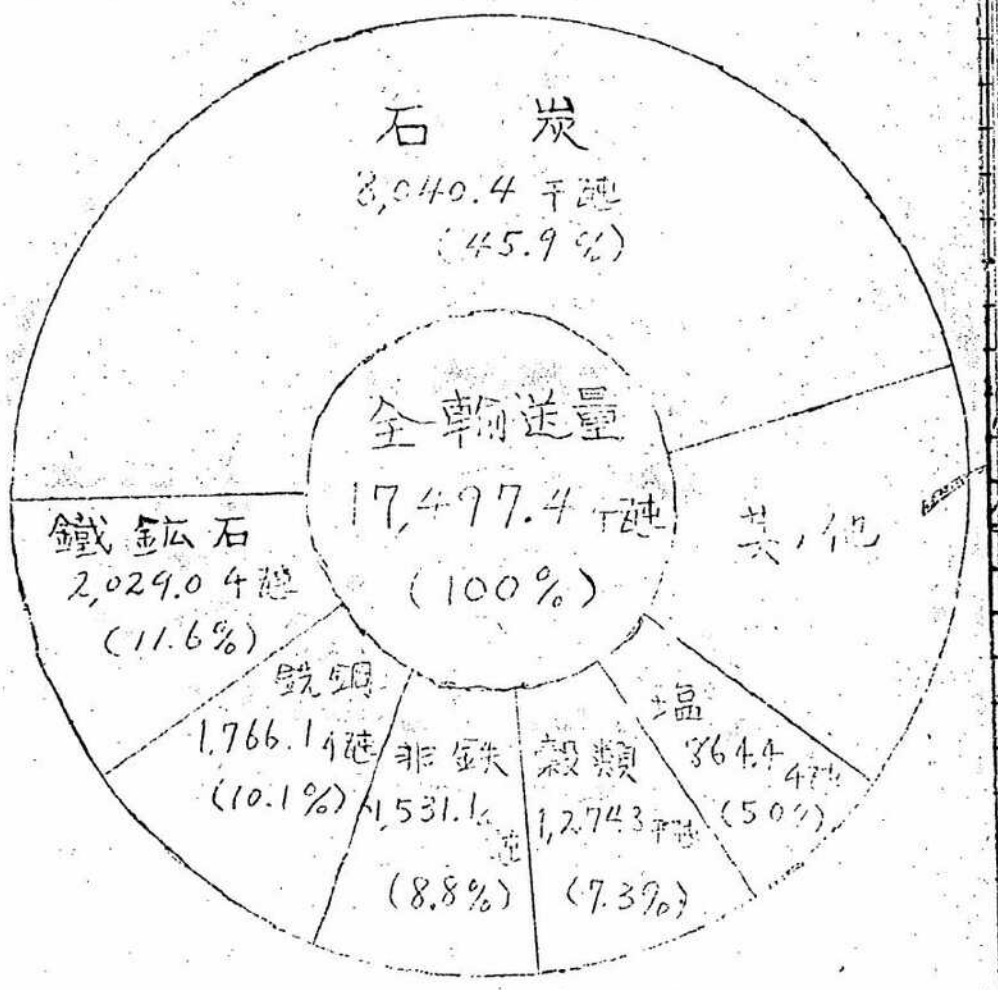 石炭
8,040.4 千瓲
(45.9%)
全輸送量
17,497.4 千瓲
(100%)
其ノ他
鐵鉱石
2,029.0 千瓲
(11.6%)
銑鋼
1,766.1 千瓲
(10.1%)
非鉄
1,531.1 千瓲
(8.8%)
穀類
1,274.3 千瓲
(7.3%)
塩
864.4 千瓲
(5.0%)